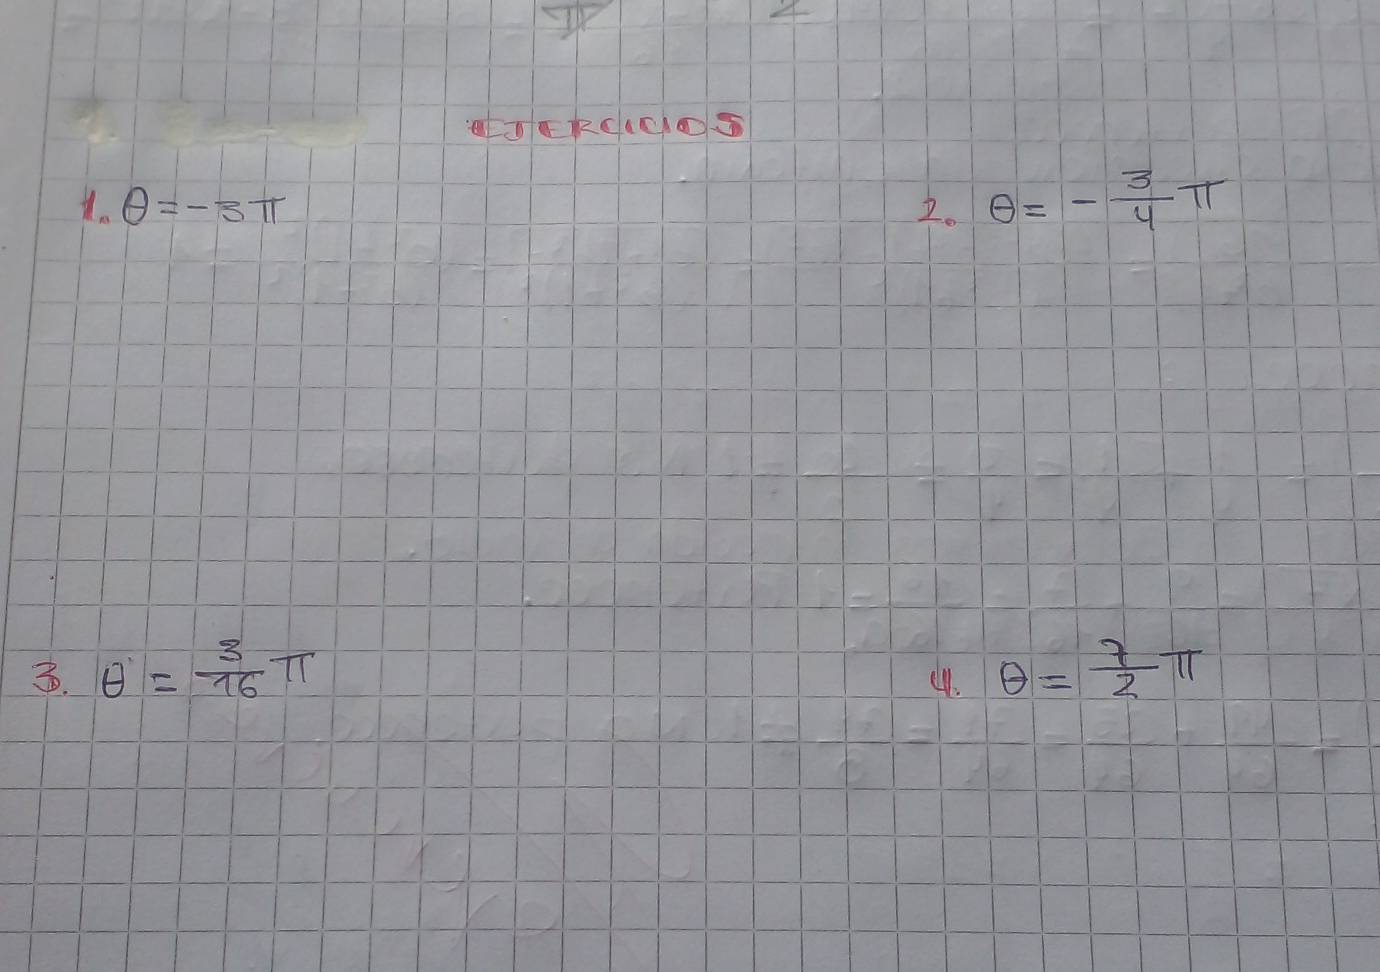 EJERCICIOS
1. θ = -3π
2. θ = - 3/4 π
3. θ = 3/16 π
4. θ = 7/2 π